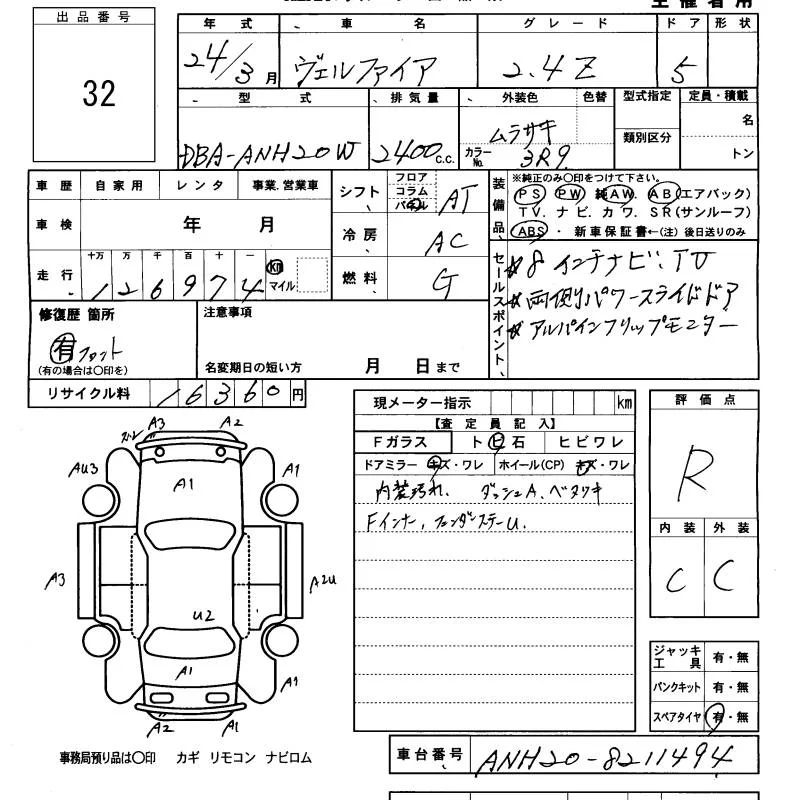 主催者用
出品番号
32
年式 車名 グレード ドア 形状
24/3月 ヴェルファイア 2.4Z 5
型式 排気量 外装色 色替 型式指定 定員・積載
DBA-ANH20W 2400c.c. ムラサキ 名
カラーNo. 3R9 類別区分 トン
車歴 自家用 レンタ 事業.営業車
車検 年 月
走行 十万 万 千 百 十 一 km マイル
126974
シフト フロア コラム AT
冷房 AC
燃料 G
装備品 ※純正のみ〇印をつけて下さい。
PS PW 純AW. AB(エアバック)
TV. ナビ. カワ. SR(サンルーフ)
ABS・ 新車保証書←(注)後日送りのみ
セールスポイント
☆8インチナビ、TV
☆両側パワースライドドア
☆アルパインフリップモニター
修復歴 箇所
有 フロント
(有の場合は〇印を)
注意事項
名変期日の短い方 月 日まで
リサイクル料 16360円
現メーター指示 km
【査定員記入】
Fガラス トビ石 ヒビワレ
ドアミラー キズ・ワレ ホイール(CP) キズ・ワレ
内装汚れ、ダッシュA、ベタツキ
Fインナー、フェンダーステーU.
評価点
R
内装 外装
C C
A3 A2
AU3 A1 A1
A3 A2U
U2
A1 A1
A2 A1
ジャッキ工具 有・無
パンクキット 有・無
スペアタイヤ 有・無
事務局預り品は〇印 カギ リモコン ナビロム
車台番号 ANH20-8211494